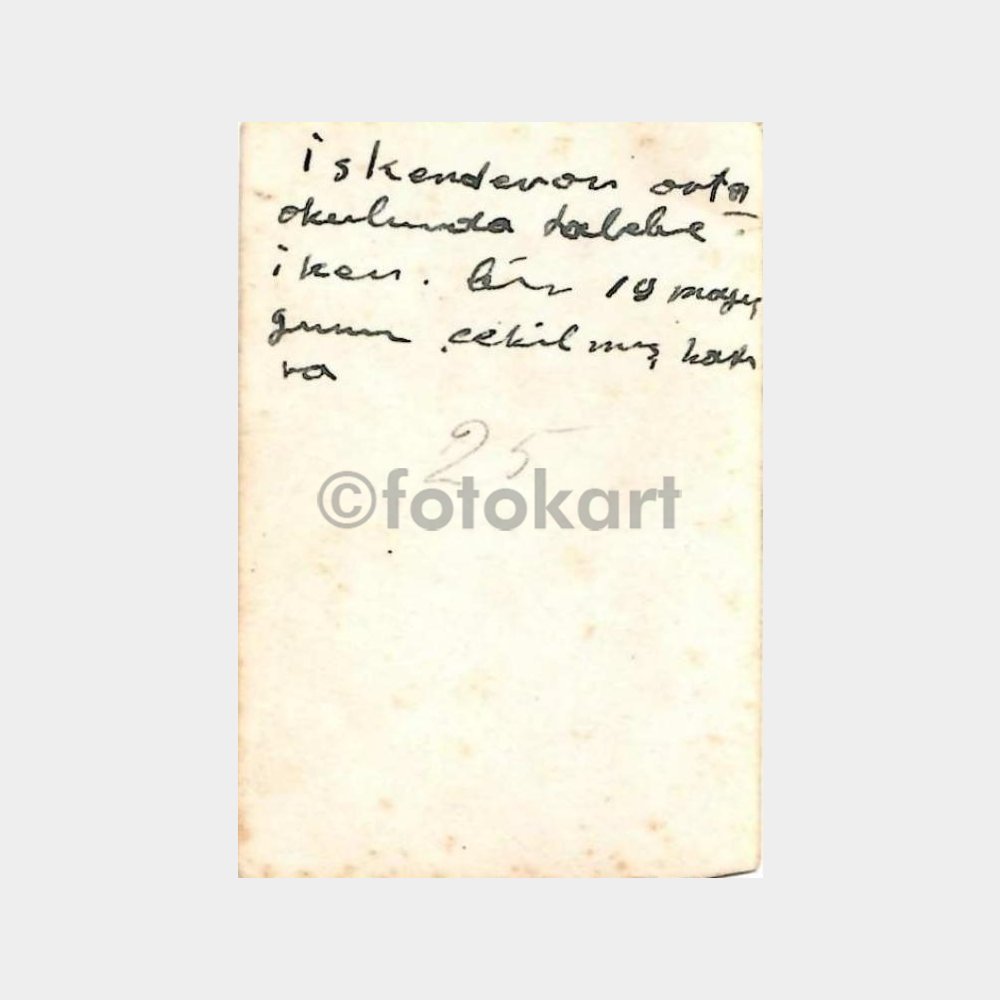 iskenderon orta
okulunda talebe
iken. bir 19 mayıs
gunu çekilmış hatı
ra
25
©fotokart